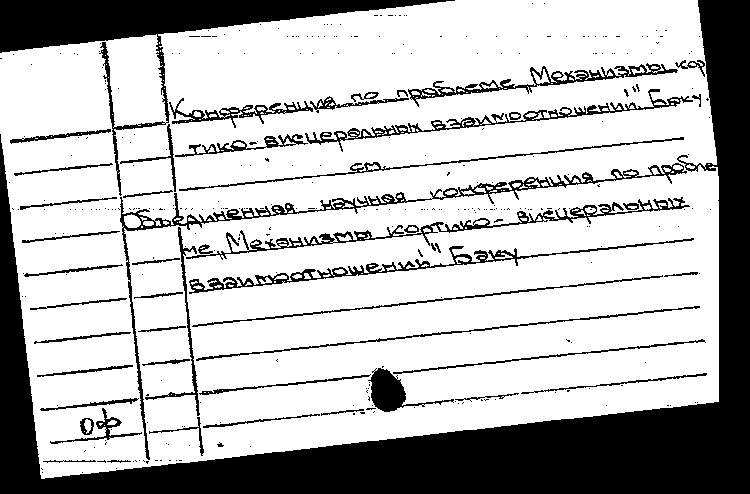 Конференция по проблеме „Механизмы кор
тико-висцеральных взаимоотношений". Баку.
см.
Объединенная научная конференция по пробле
ме „Механизмы кортико-висцеральных
взаимоотношений" Баку
оф